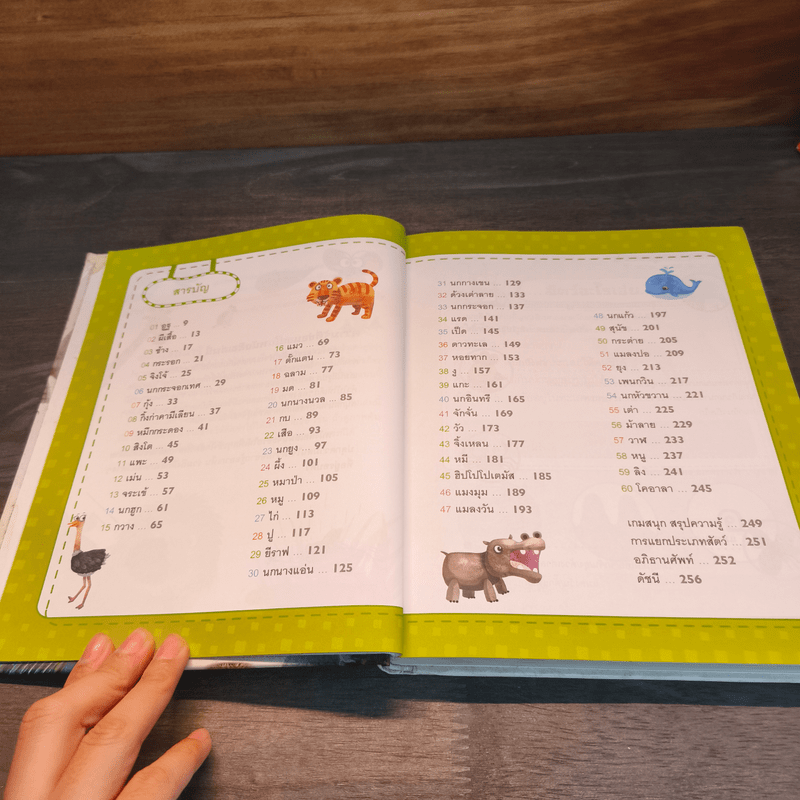 สารบัญ
01 อูฐ ... 9
02 ผีเสื้อ ... 13
03 ช้าง ... 17
04 กระรอก ... 21
05 จิงโจ้ ... 25
06 นกกระจอกเทศ ... 29
07 กุ้ง ... 33
08 กิ้งก่าคามิเลียน ... 37
09 หมึกกระดอง ... 41
10 สิงโต ... 45
11 แพะ ... 49
12 เม่น ... 53
13 จระเข้ ... 57
14 นกฮูก ... 61
15 กวาง ... 65
16 แมว ... 69
17 ตั๊กแตน ... 73
18 ฉลาม ... 77
19 มด ... 81
20 นกนางนวล ... 85
21 กบ ... 89
22 เสือ ... 93
23 นกยูง ... 97
24 ผึ้ง ... 101
25 หมาป่า ... 105
26 หมู ... 109
27 ไก่ ... 113
28 ปู ... 117
29 ยีราฟ ... 121
30 นกนางแอ่น ... 125
31 นกกางเขน ... 129
32 ด้วงเต่าลาย ... 133
33 นกกระจอก ... 137
34 แรด ... 141
35 เป็ด ... 145
36 ดาวทะเล ... 149
37 หอยทาก ... 153
38 งู ... 157
39 แกะ ... 161
40 นกอินทรี ... 165
41 จักจั่น ... 169
42 วัว ... 173
43 จิ้งเหลน ... 177
44 หมี ... 181
45 ฮิปโปโปเตมัส ... 185
46 แมงมุม ... 189
47 แมลงวัน ... 193
48 นกแก้ว ... 197
49 สุนัข ... 201
50 กระต่าย ... 205
51 แมลงปอ ... 209
52 ยุง ... 213
53 เพนกวิน ... 217
54 นกหัวขวาน ... 221
55 เต่า ... 225
56 ม้าลาย ... 229
57 วาฬ ... 233
58 หนู ... 237
59 ลิง ... 241
60 โคอาลา ... 245
เกมสนุก สรุปความรู้ ... 249
การแยกประเภทสัตว์ ... 251
อภิธานศัพท์ ... 252
ดัชนี ... 256